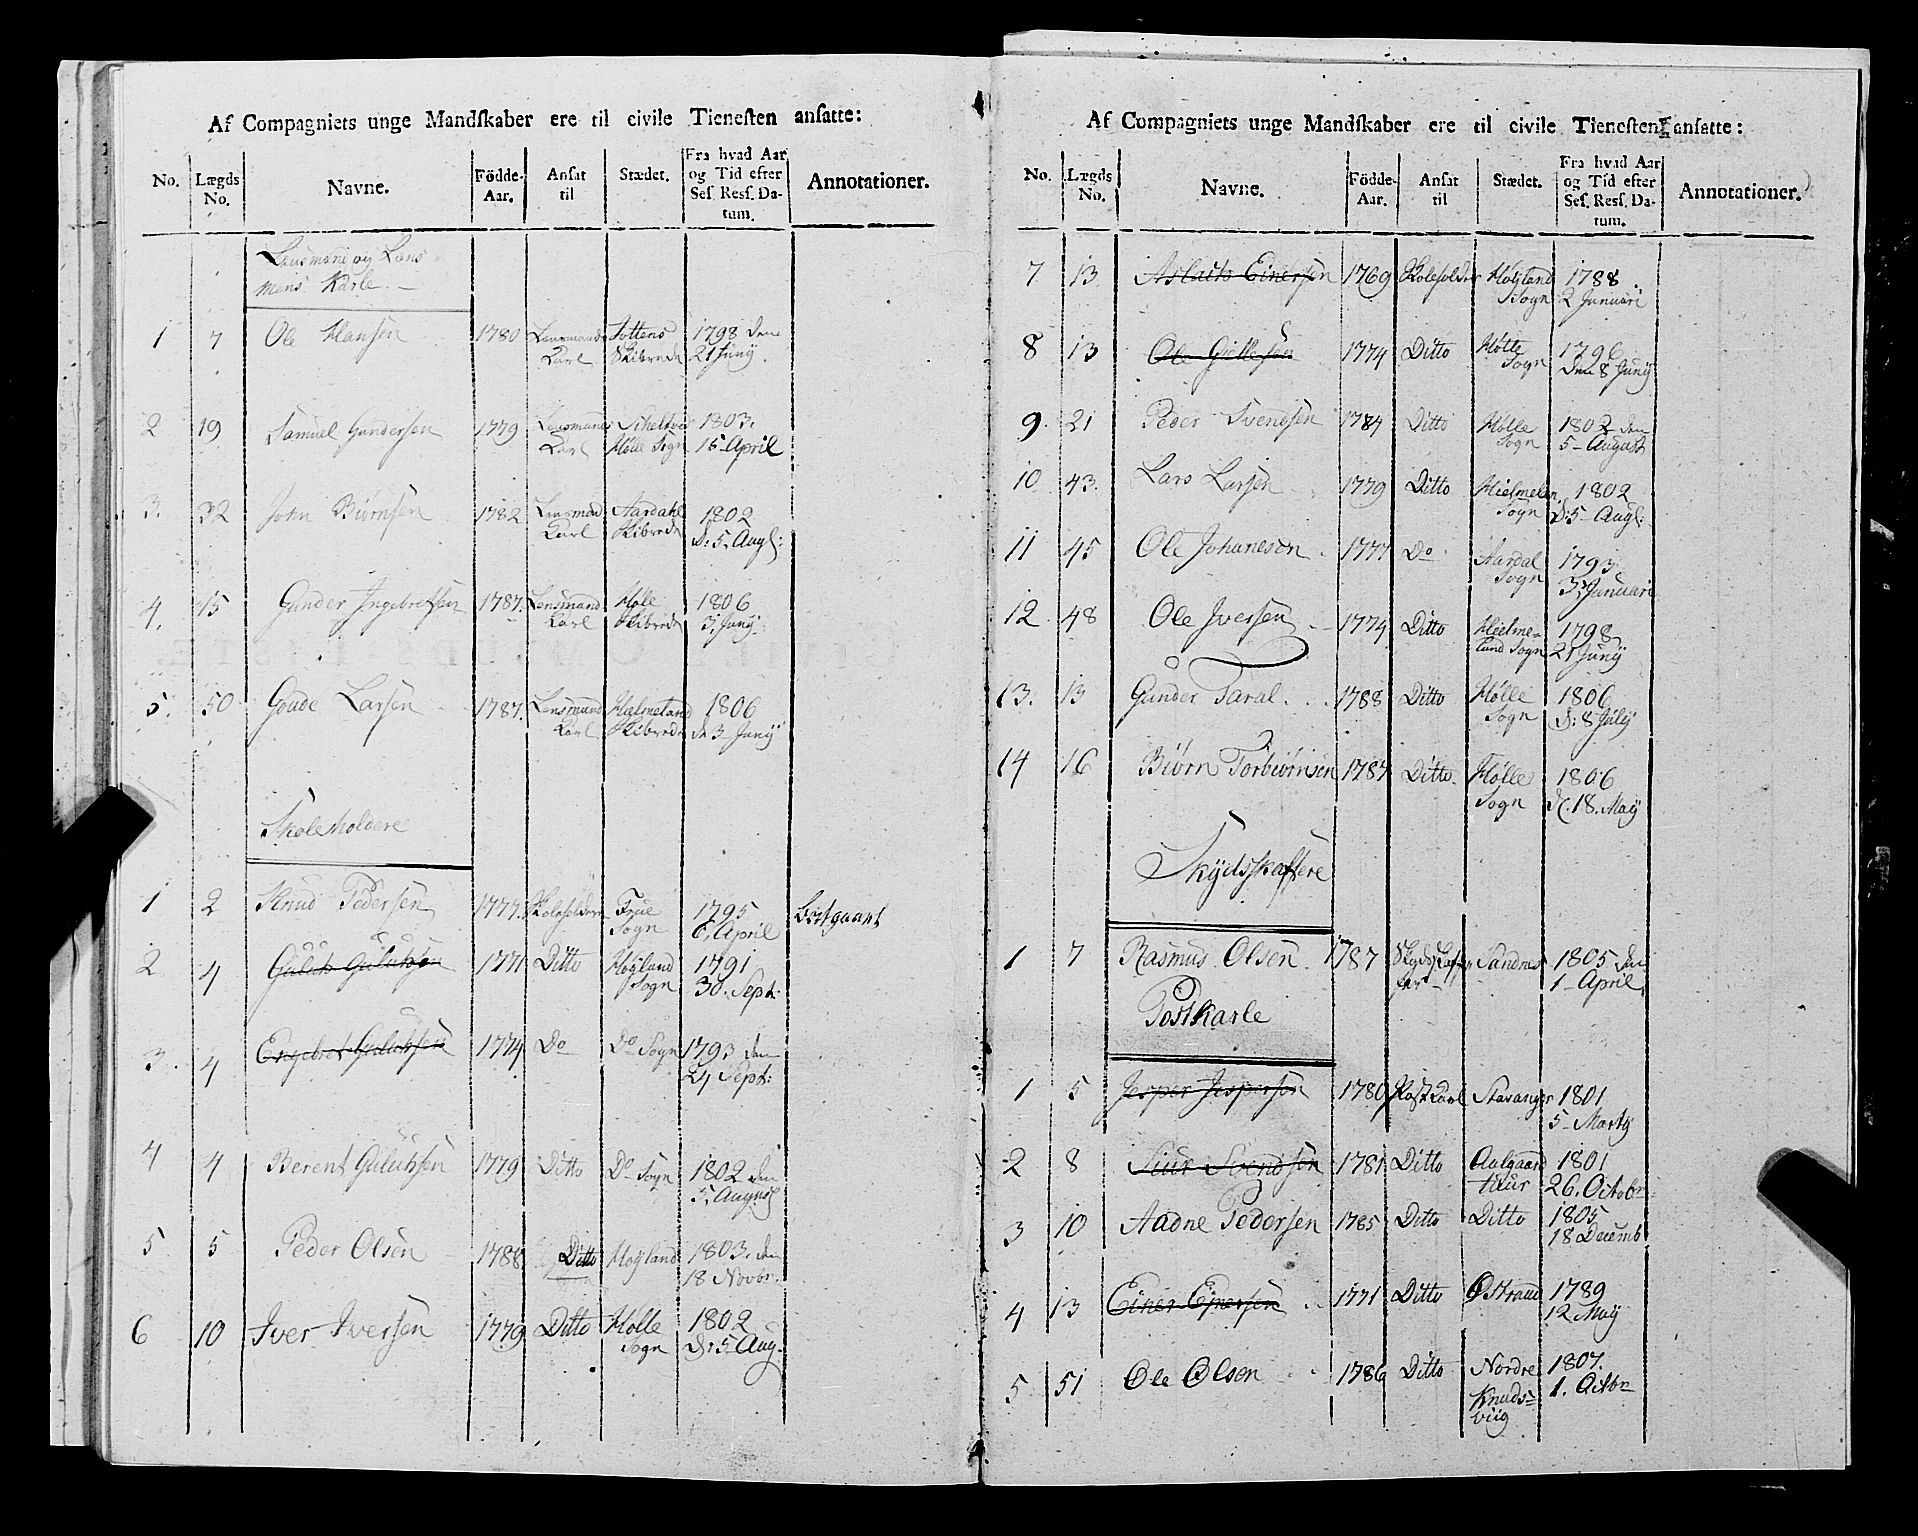 Af Compagniets unge Mandſkaber ere til civile Tieneſten anſatte:
No. Lægds No. Navne. Födde-Aar. Anſat til Stædet. Fra hvad Aar og Tid efter Seſ. Reſſ. Datum. Annotationer.
Lensmænd og Lens-
mens Karle.
1 7 Ole Hansen 1780 Lensmands Karl Skibrede 1798 den 21 Juny.
2 19 Samuel Gundersen 1779 Lensmands Karl Hølle Sogn 1803. 15 April
3. 32 John Biørnsen 1782 Lensmand Karl Aardahl Skibrede 1802 d: 5. Augl:
4. 15 Gunder Ingebretsen 1787. Lensmand Karl Hølle Skibrede 1806 3. Juny
5. 50 Goude Larsen 1787. Lensmand Karl Hielmeland Skibrede 1806 d 3 Juny
Skoleholdere
1 2 Knud Pedersen 1777. Skoleholder Frue Sogn 1795 6. April bortgaaet
2 4 Guluk Guluksen 1771 Ditto Høyland Sogn 1791 30. Sept:
3. 4 Engebret Guluksen 1774 Do Do Sogn 1793 den 24 Sept:
4 4 Berent Guluksen 1779 Ditto Do Sogn 1802 den 5. August
5 5 Peder Olsen 1788 Ditto Høyland 1803. den 18 Novbr.
6 10 Iver Iversen 1779 Ditto Hølle Sogn 1802 d: 5. Aug.
Af Compagniets unge Mandſkaber ere til civile Tieneſten anſatte:
No. Lægds No. Navne. Födde-Aar. Anſat til Stædet. Fra hvad Aar og Tid efter Seſ. Reſſ. Datum. Annotationer.
7 13 Aslach Einersen 1769 Skoleholder Høyland Sogn 1788. 2 Januari
8 13 Ole Gittlesen 1774 Ditto Høtte Sogn 1796 den 8 Juny
9. 21 Peder Svendsen 1784 Ditto Hølle Sogn 1802 den 5 August
10 43. Lars Larsen 1779 Ditto Hielmelan Sogn 1802 d: 5 Augl:
11 45 Ole Johanesen 1777 Do Aardal Sogn 1793 3. Januari
12 48 Ole Iversen 1774 Ditto Hielme-land Sogn 1798 21 Juny
13. 13 Gunder Taral 1788 Ditto Hølle Sogn 1806 d: 8 July
14 16 Biørn Torbiørnsen 1787 Ditto Hølle Sogn 1806 d. 18. May
Skydsskaffere
1 7 Rasmus Olsen 1787 Skydsskaffer Sandnes 1805 den 1 April
Postkarle
1 5 Jesper Jespersen 1780 Postkarl Stavanger 1801 5 Marty
2 8 Siur Svendsen 1781 Ditto Aalgaard 1801 26. Octobr
3 10 Aadne Pedersen 1785 Ditto Ditto 1805 18 Decemb
4 13 Einer Einersen 1771 Ditto Østraad 1789 12 May
5 51 Ole Olsen 1786 Ditto Nordre Knuds-viig 1807. 1. Octbr